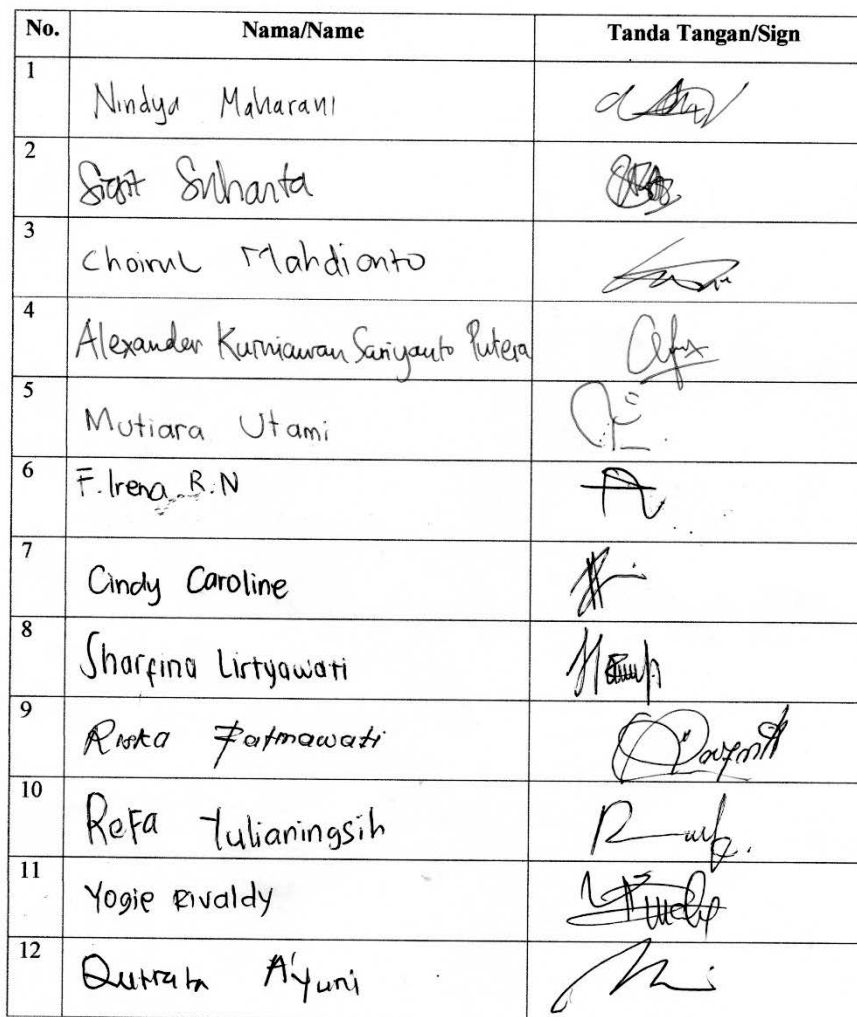 No. Nama/Name Tanda Tangan/Sign
1 Nindya Maharani
2 Sigit Suharta
3 Choirul Mahdianto
4 Alexander Kurniawan Sariyanto Putera
5 Mutiara Utami
6 F. Irena R.N
7 Cindy Caroline
8 Sharfina Listyawati
9 Riska Fatmawati
10 Refa Yulianingsih
11 Yogie Rivaldy
12 Qurrata A'yuni